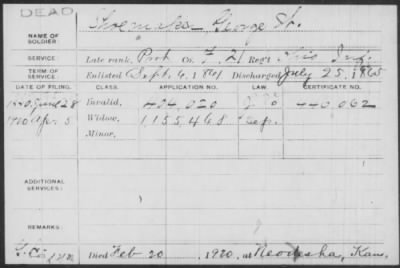 DEAD
NAME OF SOLDIER: Shoemaker, George
SERVICE: Late rank, Prvt Co. F, 21 Reg't Inf.
TERM OF SERVICE: Enlisted Sept. 6, 1861 Discharged July 25, 1865
DATE OF FILING. CLASS. APPLICATION NO. LAW. CERTIFICATE NO.
1880, June 28 Invalid, 404,020 440,062
1920 Apr 5 Widow, 1155,468
Minor,
ADDITIONAL SERVICES:
REMARKS:
Died Feb 20, 1920, at Neodesha, Kans.